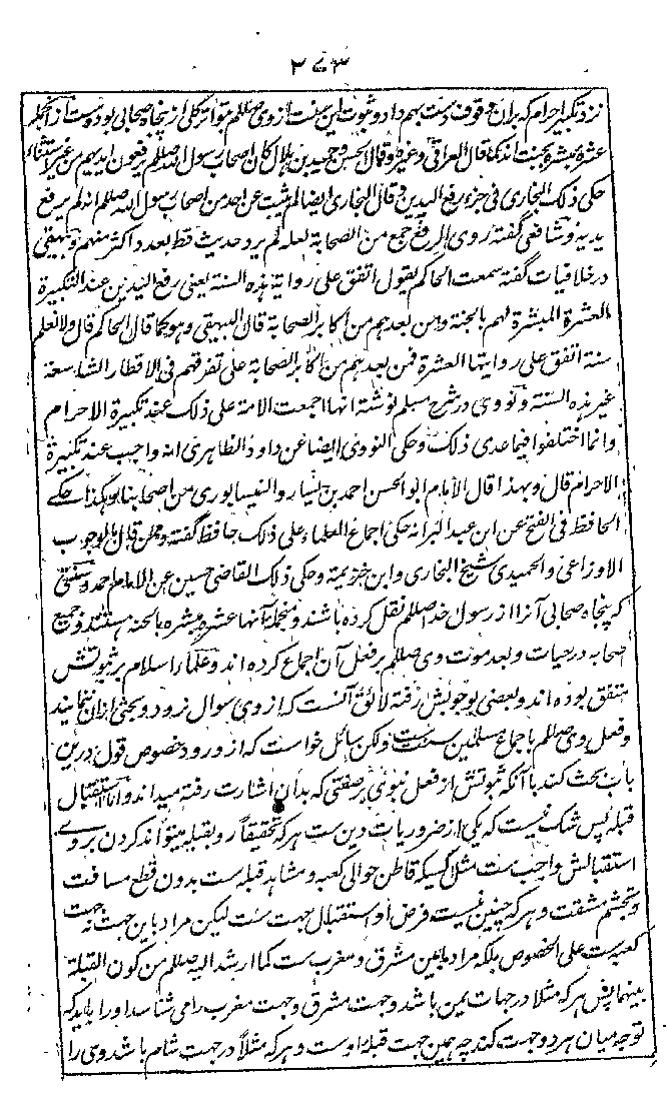 ۲۷۳
نزد تکبیر احرام که بران وقوف دست بهم داد و ثبوت این سنت از وی صللم بتواتر کلی از پنجاه صحابی بوده است از آنجمله
عشره مبشره بجنت اند کما قال العراقی وغیره وقال الحسن وحمید بن هلال کان اصحاب رسول الله صللم یرفعون ایدیهم من غیر استثناء
حکی ذلک البخاری فی جزء رفع الیدین وقال البخاری ایضا لم یثبت عن احد من اصحاب رسول الله صللم انه لم یرفع
یدیه وشافعی گفته روی الرفع جمع من الصحابة لعله لم یرو حدیث قط بعدد اکثر منهم وبیهقی
در خلافیات گفته سمعت الحاکم یقول اتفق علی روایة هذه السنة یعنی رفع الیدین عند التکبیرة
العشرة المبشرة لهم بالجنة ومن بعدهم من اکابر الصحابة قال البیهقی وهو کما قال الحاکم قال ولا نعلم
سنة اتفق علی روایتها العشرة فمن بعدهم من اکابر الصحابة علی تفرقهم فی الاقطار الشاسعة
غیر هذه السنة ونووی در شرح مسلم نوشته انها اجمعت الامة علی ذلک عند تکبیرة الاحرام
وانما اختلفوا فیما عدی ذلک وحکی النووی ایضا عن داود الظاهری انه واجب عند تکبیرة
الاحرام قال وبهذا قال الامام ابو الحسن احمد بن سیار والنیسابوری من اصحابنا وهکذا حکی
الحافظ فی الفتح عن ابن عبد البر انه حکی اجماع العلماء علی ذلک حافظ گفته وممن قال بالوجوب
الاوزاعی والحمیدی شیخ البخاری وابن خزیمة وحکی ذلک القاضی حسین عن الامام احمد وسنتی
که پنجاه صحابی آنرا از رسول خدا صللم نقل کرده باشند و منجمله آنها عشره مبشره بالجنه هستند و جمیع
صحابه در حیات و بعد موت وی صللم بر فعل آن اجماع کرده اند و علماء اسلام بر ثبوتش
متفق بوده اند و بعضی بوجوبش رفته لائق آنست که از وی سوال نرود و بحثی ازان ننمایند
و فعل وی صللم باجماع مسلمین سنت ست ولکن سائل خواست که از ورود خصوص قول درین
باب بحث کند با آنکه ثبوتش از فعل نبوی بر صفتی که بدان اشارت رفته میداند و اما استقبال
قبله پس شک نیست که یکی از ضروریات دین ست هر که تحقیقاً رو بقبله میتواند کردن بر وے
استقبالش واجب ست مثلا کسیکه قاطن حوالی کعبه و مشاهد قبله ست بدون قطع مسافت
و تجشم مشقت و هر که چنین نیست فرض او استقبال جهت ست لیکن مراد باین جهت نه جهت
کعبه ست علی الخصوص بلکه مراد مابین مشرق و مغرب ست کما ارشد الیه صللم من کون القبلة
بینهما پس هر که مثلا در جهات یمن باشد و جهت مشرق و جهت مغرب را می شناسد او را باید که
توجه میان هر دو جهت کند چه همین جهت قبله اوست و هر که مثلاً در جهت شام باشد وی را